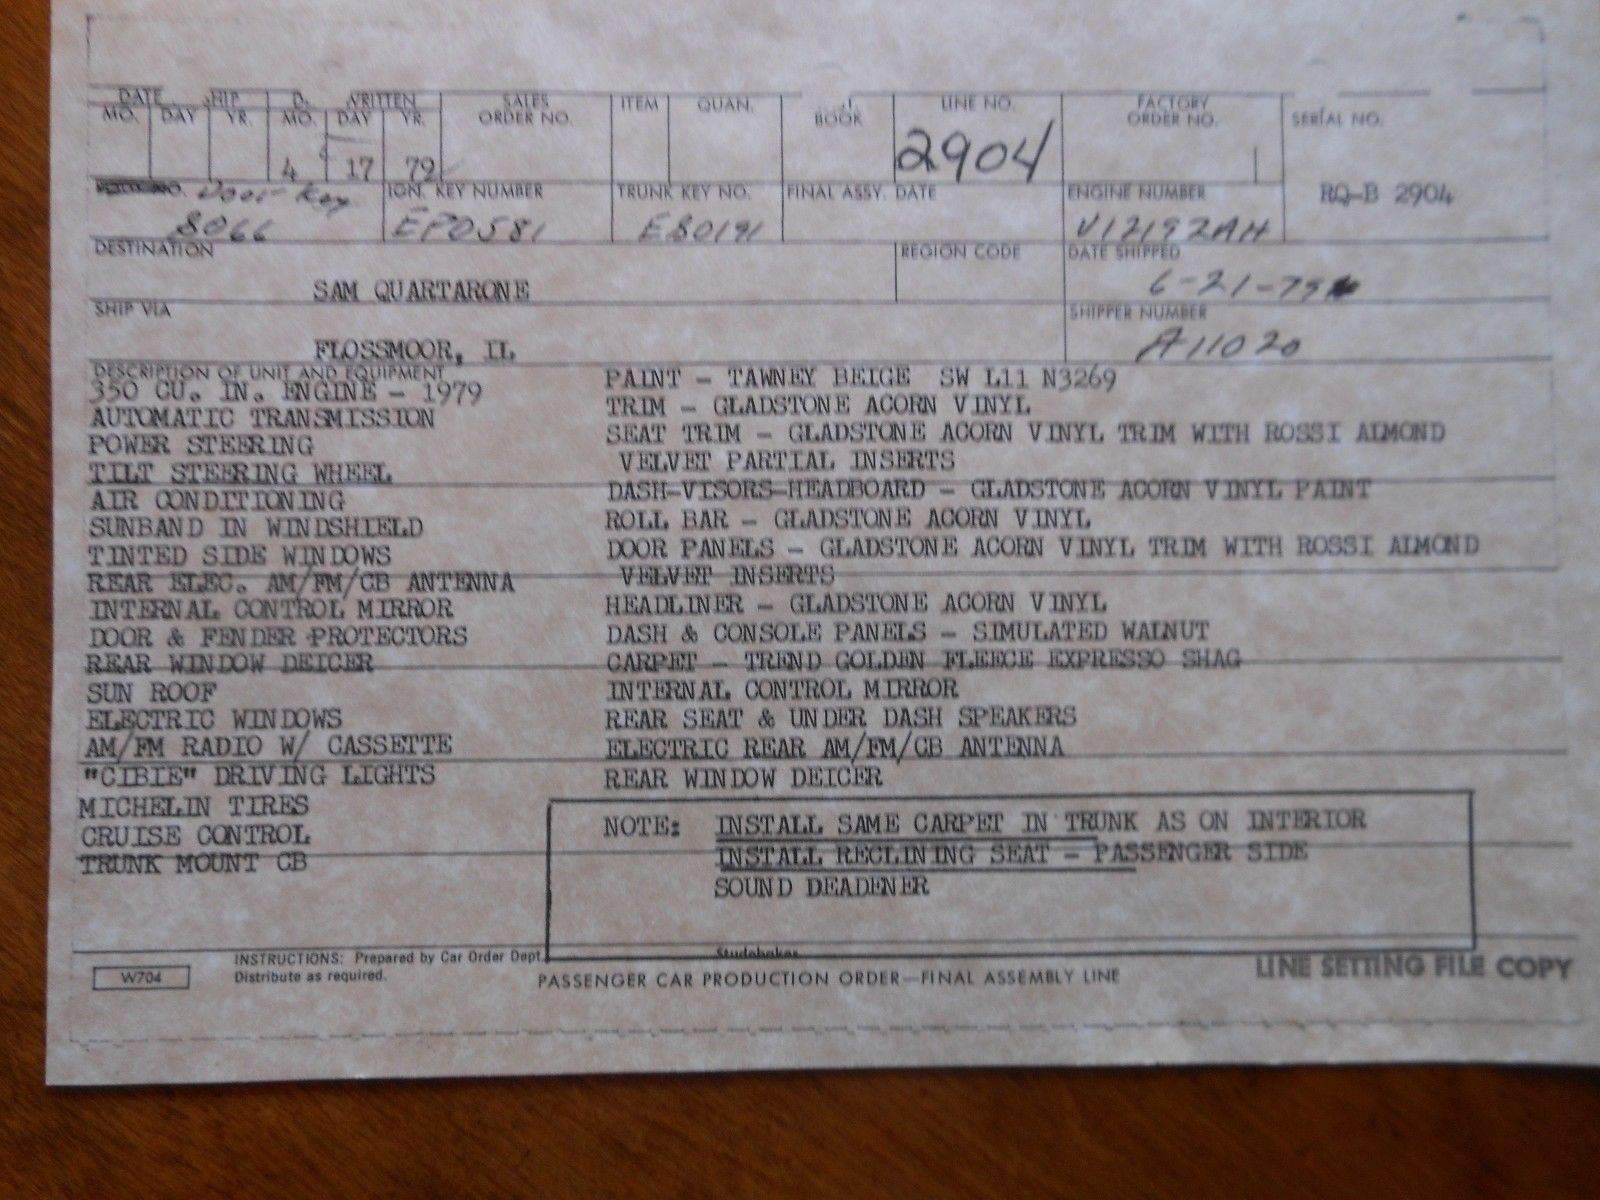 DATE SHIP D. WRITTEN SALES ORDER NO. ITEM QUAN. BOOK LINE NO. FACTORY ORDER NO. SERIAL NO.
MO. DAY YR. MO. DAY YR.
4 17 79 2904
NO. Door Key IGN. KEY NUMBER TRUNK KEY NO. FINAL ASSY. DATE ENGINE NUMBER RQ-B 2904
8066 EP0581 E80191 V12192AH
DESTINATION REGION CODE DATE SHIPPED
SAM QUARTARONE 6-21-79
SHIP VIA SHIPPER NUMBER
FLOSSMOOR, IL A11020
DESCRIPTION OF UNIT AND EQUIPMENT
350 CU. IN. ENGINE - 1979
AUTOMATIC TRANSMISSION
POWER STEERING
TILT STEERING WHEEL
AIR CONDITIONING
SUNBAND IN WINDSHIELD
TINTED SIDE WINDOWS
REAR ELEC. AM/FM/CB ANTENNA
INTERNAL CONTROL MIRROR
DOOR & FENDER PROTECTORS
REAR WINDOW DEICER
SUN ROOF
ELECTRIC WINDOWS
AM/FM RADIO W/ CASSETTE
"CIBIE" DRIVING LIGHTS
MICHELIN TIRES
CRUISE CONTROL
TRUNK MOUNT CB
PAINT - TAWNEY BEIGE SW L11 N3269
TRIM - GLADSTONE ACORN VINYL
SEAT TRIM - GLADSTONE ACORN VINYL TRIM WITH ROSSI ALMOND
VELVET PARTIAL INSERTS
DASH-VISORS-HEADBOARD - GLADSTONE ACORN VINYL PAINT
ROLL BAR - GLADSTONE ACORN VINYL
DOOR PANELS - GLADSTONE ACORN VINYL TRIM WITH ROSSI ALMOND
VELVET INSERTS
HEADLINER - GLADSTONE ACORN VINYL
DASH & CONSOLE PANELS - SIMULATED WALNUT
CARPET - TREND GOLDEN FLEECE EXPRESSO SHAG
INTERNAL CONTROL MIRROR
REAR SEAT & UNDER DASH SPEAKERS
ELECTRIC REAR AM/FM/CB ANTENNA
REAR WINDOW DEICER
NOTE: INSTALL SAME CARPET IN TRUNK AS ON INTERIOR
INSTALL RECLINING SEAT - PASSENGER SIDE
SOUND DEADENER
Studebaker
W704
INSTRUCTIONS: Prepared by Car Order Dept.
Distribute as required.
PASSENGER CAR PRODUCTION ORDER—FINAL ASSEMBLY LINE
LINE SETTING FILE COPY